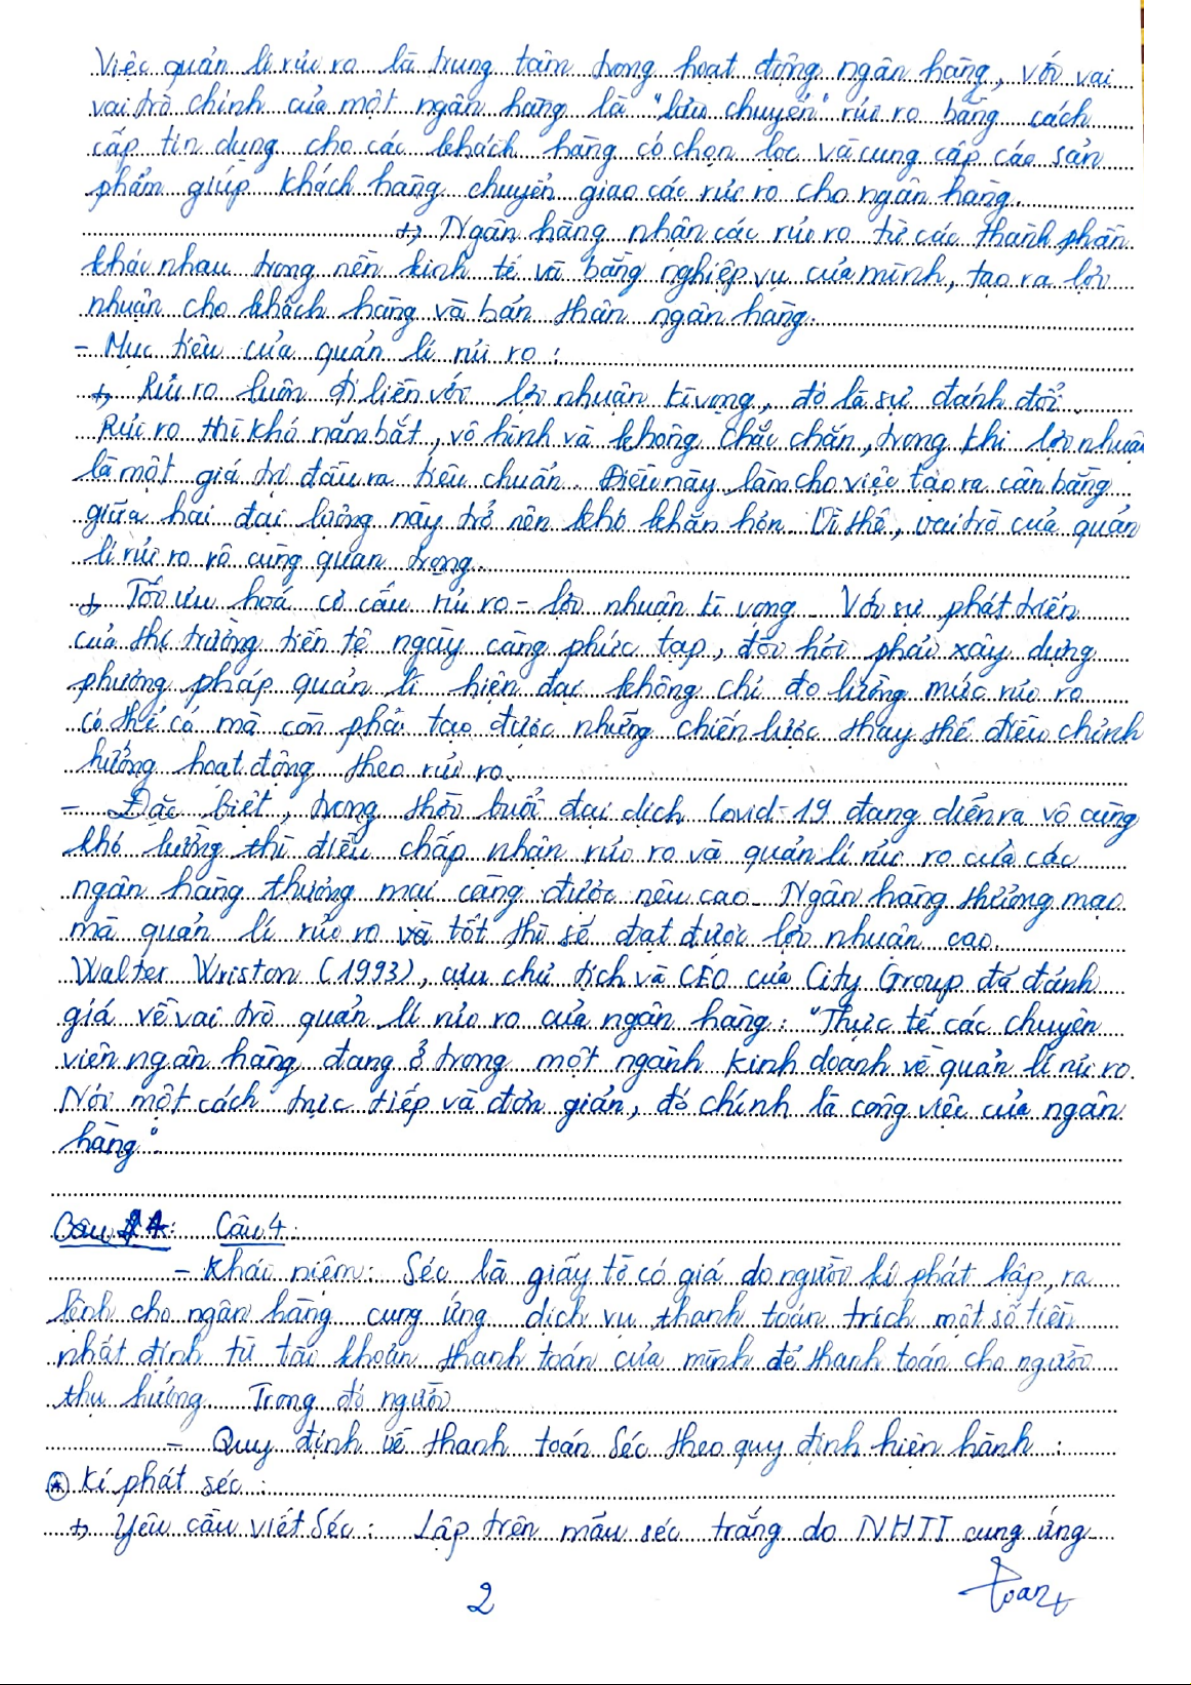 Việc quản lí rủi ro là trung tâm trong hoạt động ngân hàng, với vai
vai trò chính của một ngân hàng là "lưu chuyển" rủi ro bằng cách
cấp tín dụng cho các khách hàng có chọn lọc và cung cấp các sản
phẩm giúp khách hàng chuyển giao các rủi ro cho ngân hàng.
+, Ngân hàng nhận các rủi ro từ các thành phần
khác nhau trong nền kinh tế và bằng nghiệp vụ của mình, tạo ra lợi
nhuận cho khách hàng và bản thân ngân hàng.
- Mục tiêu của quản lí rủi ro :
+, Rủi ro luôn đi liền với lợi nhuận kì vọng, đó là sự đánh đổi.
Rủi ro thì khó nắm bắt, vô hình và không chắc chắn, trong khi lợi nhuận
là một giá trị đầu ra tiêu chuẩn. Điều này làm cho việc tạo ra cân bằng
giữa hai đại lượng này trở nên khó khăn hơn. Vì thế, vai trò của quản
lí rủi ro vô cùng quan trọng.
+, Tối ưu hoá cơ cấu rủi ro - lợi nhuận kì vọng. Với sự phát triển
của thị trường tiền tệ ngày càng phức tạp, đòi hỏi phải xây dựng
phương pháp quản lí hiện đại không chỉ đo lường mức rủi ro
có thể có mà còn phải tạo được những chiến lược thay thế điều chỉnh
hướng hoạt động theo rủi ro.
- Đặc biệt, trong thời buổi đại dịch Covid-19 đang diễn ra vô cùng
khó lường thì điều chấp nhận rủi ro và quản lí rủi ro của các
ngân hàng thương mại càng được nêu cao. Ngân hàng thương mại
mà quản lí rủi ro và tốt thì sẽ đạt được lợi nhuận cao.
Walter Wriston (1993), cựu chủ tịch và CEO của City Group đã đánh
giá về vai trò quản lí rủi ro của ngân hàng : "Thực tế các chuyên
viên ngân hàng đang ở trong một ngành kinh doanh về quản lí rủi ro.
Nói một cách trực tiếp và đơn giản, đó chính là công việc của ngân
hàng".
Câu 4:
- Khái niệm: Séc là giấy tờ có giá do người kí phát lập, ra
lệnh cho ngân hàng cung ứng dịch vụ thanh toán trích một số tiền
nhất định từ tài khoản thanh toán của mình để thanh toán cho người
thụ hưởng. Trong đó người
- Quy định về thanh toán Séc theo quy định hiện hành :
* Kí phát séc :
+, Yêu cầu viết Séc : Lập trên mẫu séc trắng do NHTT cung ứng
2
Toan